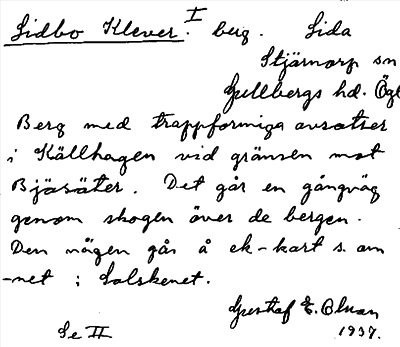 Sidbo Klever. I berg. Lida
Stjärnorp sn
Gullbergs hd. Ögl
Berg med trappformiga avsatser
i Källhagen vid gränsen mot
Bjäsäter. Det går en gångväg
genom skogen över de bergen.
Den vägen går å ek-kart s. om
-net i Solskenet.
Gustaf E. Olsson
1937.
Se II